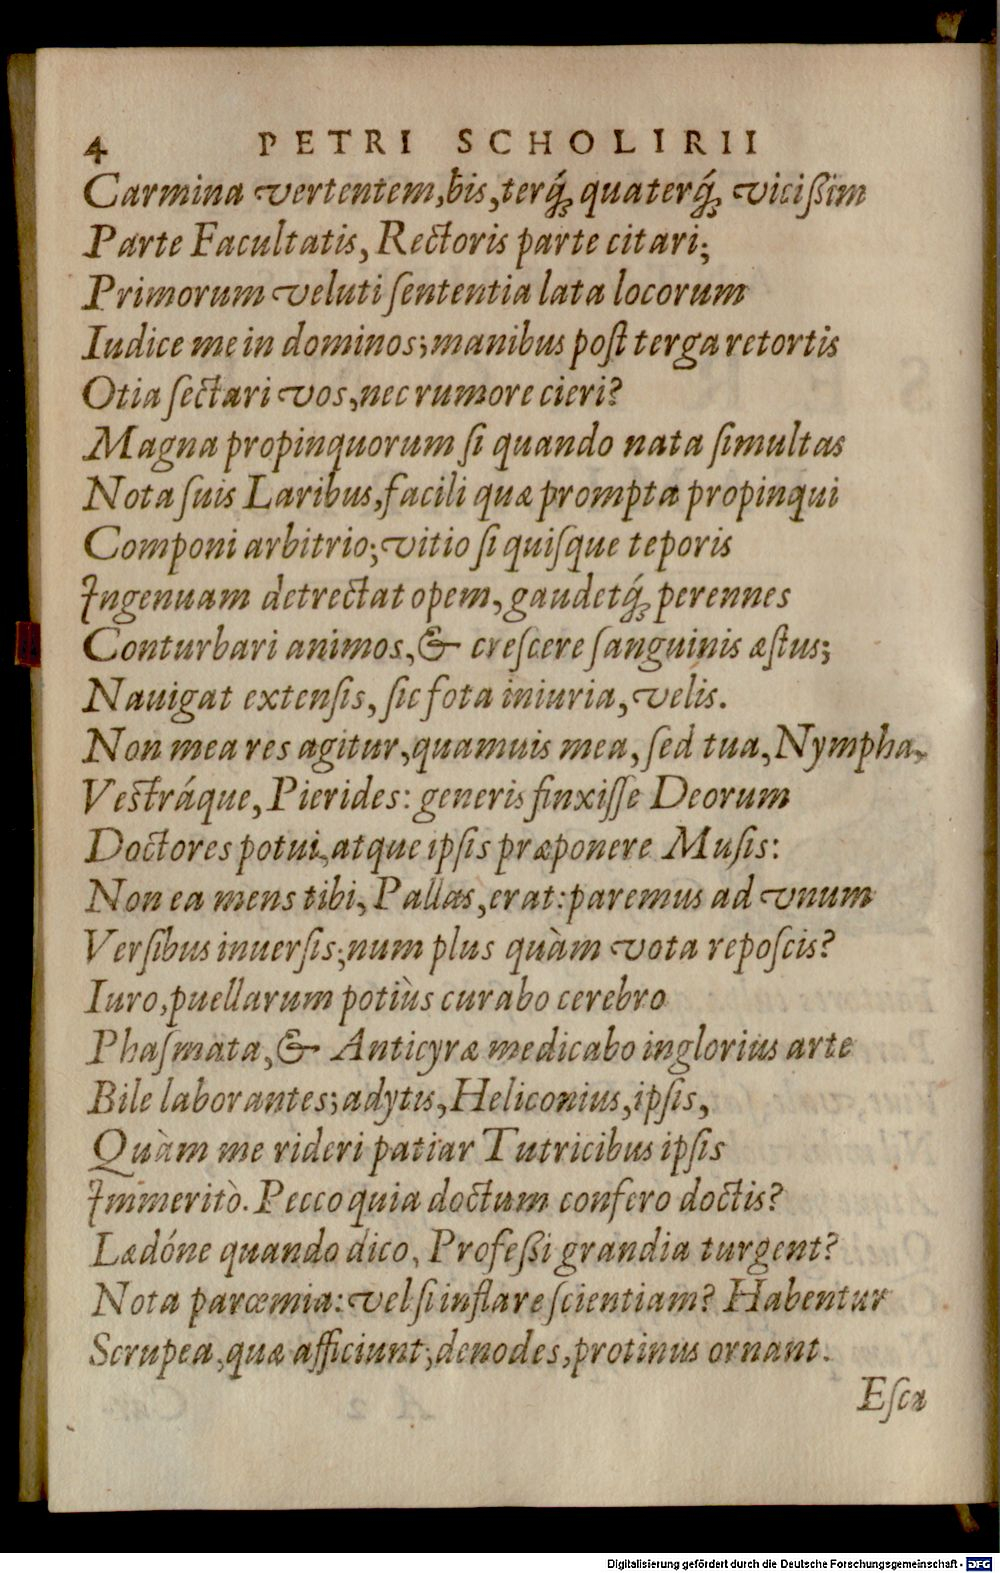 4 PETRI SCHOLIRII
Carmina vertentem, bis, terq́; quaterq́; viciſſim
Parte Facultatis, Rectoris parte citari;
Primorum veluti ſententia lata locorum
Iudice me in dominos; manibus poſt terga retortis
Otia ſectari vos, nec rumore cieri?
Magna propinquorum ſi quando nata ſimultas
Nota ſuis Laribus, facili quæ prompta propinqui
Componi arbitrio; vitio ſi quiſque teporis
Ingenuam detrectat opem, gaudetq́; perennes
Conturbari animos, & creſcere ſanguinis æſtus;
Nauigat extenſis, ſic fota iniuria, velis.
Non mea res agitur, quamuis mea, ſed tua, Nympha,
Veſtráque, Pierides: generis finxiſſe Deorum
Doctores potui, atque ipſis præponere Muſis:
Non ea mens tibi, Pallas, erat: paremus ad vnum
Verſibus inuerſis; num plus quàm vota repoſcis?
Iuro, puellarum potiùs curabo cerebro
Phaſmata, & Anticyræ medicabo inglorius arte
Bile laborantes; adytis, Heliconius, ipſis,
Quàm me rideri patiar Tutricibus ipſis
Immeritò. Pecco quia doctum confero doctis?
Lædóne quando dico, Profeſſi grandia turgent?
Nota parœmia: vel ſi inflare ſcientiam? Habentur
Scrupea, quæ afficiunt; denodes, protinus ornant.
Eſca
Digitalisierung gefördert durch die Deutsche Forschungsgemeinschaft - DFG